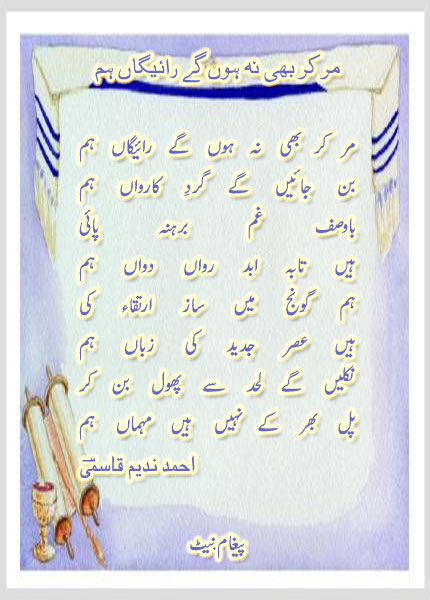 مر کر بھی نہ ہوں گے رائیگاں ہم
مر کر بھی نہ ہوں گے رائیگاں ہم
بن جائیں گے گردِ کارواں ہم
باوصف غم برہنہ پائی
ہیں تابہ ابد رواں دواں ہم
ہم گونج ہیں ساز ارتقاء کی
ہیں عصر جدید کی زباں ہم
نکلیں گے لحد سے پھول بن کر
پل بھر کے نہیں ہیں مہماں ہم
احمد ندیم قاسمیؔ
پیغام نیٹ